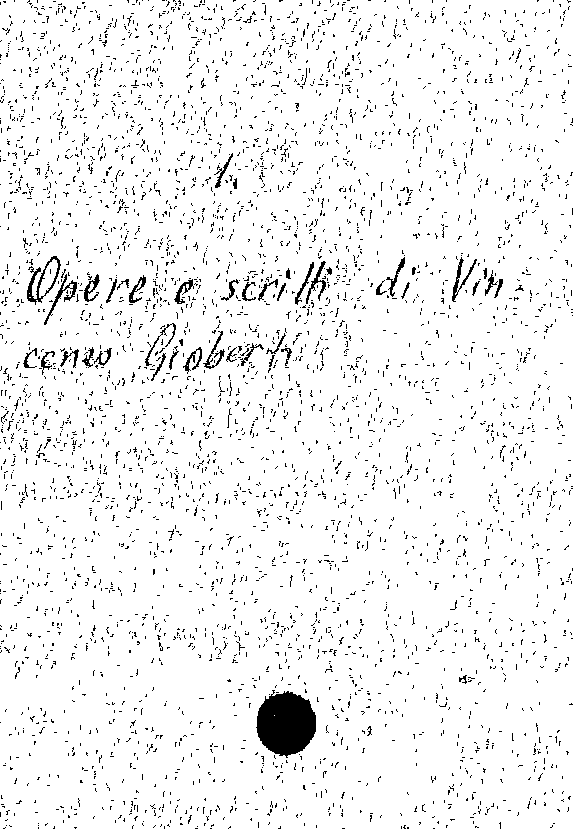 1.
Opere e scritti di Vin-
cenzo Gioberti